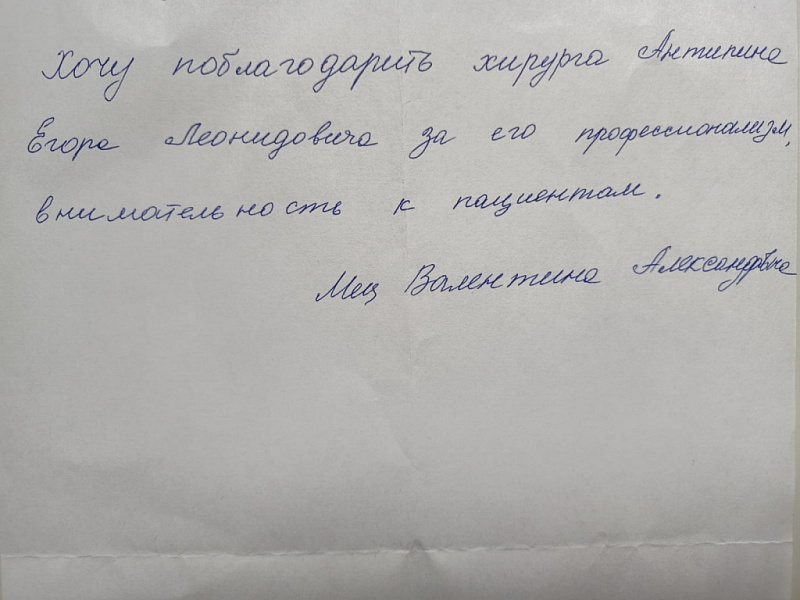 Хочу поблагодарить хирурга Антипина
Егора Леонидовича за его профессионализм,
внимательность к пациентам.
Мец Валентина Александр